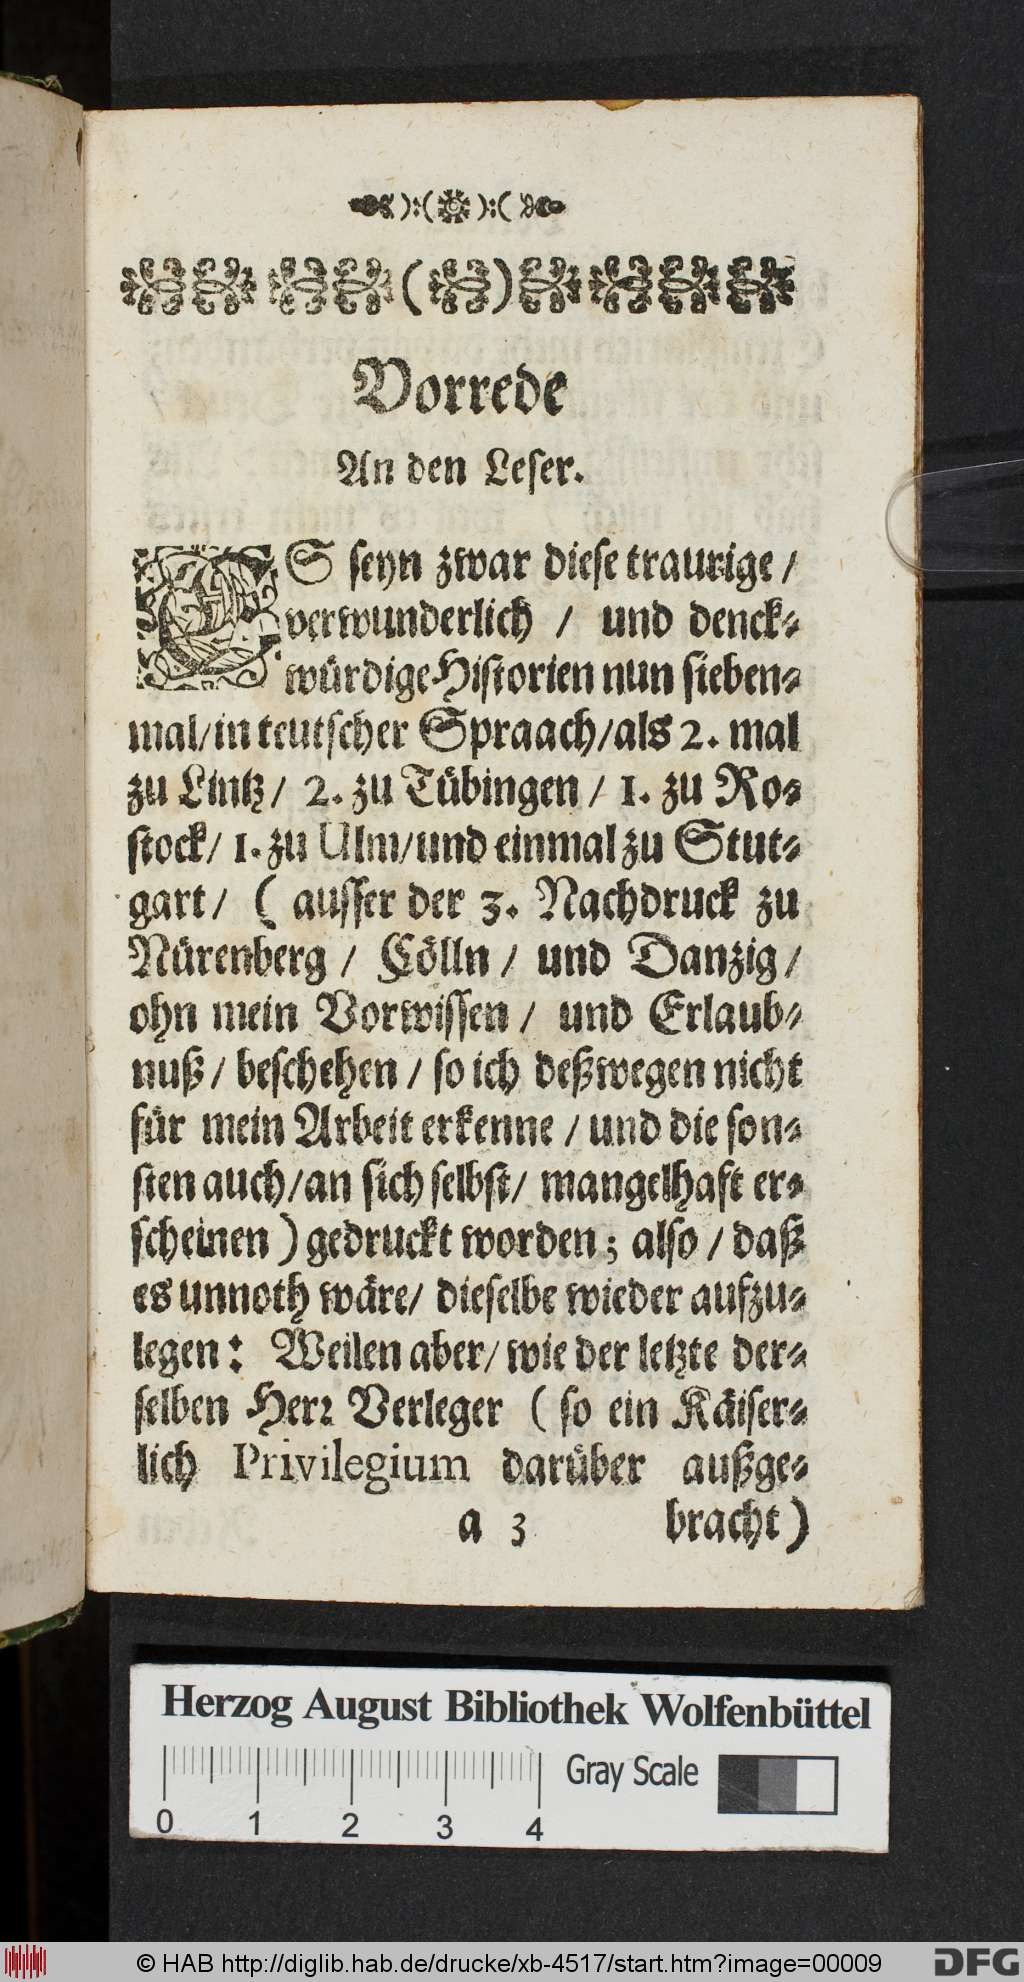 ):( ):(
( )
Vorrede
An den Leser.
ES seyn zwar diese traurige /
verwunderlich / und denck-
würdige Historien nun sieben-
mal/ in teutscher Spraach/als 2. mal
zu Lintz/ 2. zu Tübingen / 1. zu Ro-
stock/ 1. zu Ulm/und einmal zu Stut-
gart/ ( ausser der 3. Nachdruck zu
Nürenberg / Cölln / und Danzig /
ohn mein Vorwissen / und Erlaub-
nuß / beschehen / so ich deßwegen nicht
für mein Arbeit erkenne / und die son-
sten auch/an sich selbst/ mangelhaft er-
scheinen ) gedruckt worden; also / daß
es unnoth wäre/ dieselbe wieder aufzu-
legen: Weilen aber/ wie der letzte der-
selben Herr Verleger ( so ein Käiser-
lich Privilegium darüber außge-
a 3 bracht)
Herzog August Bibliothek Wolfenbüttel
Gray Scale
0 1 2 3 4
© HAB http://diglib.hab.de/drucke/xb-4517/start.htm?image=00009
DFG